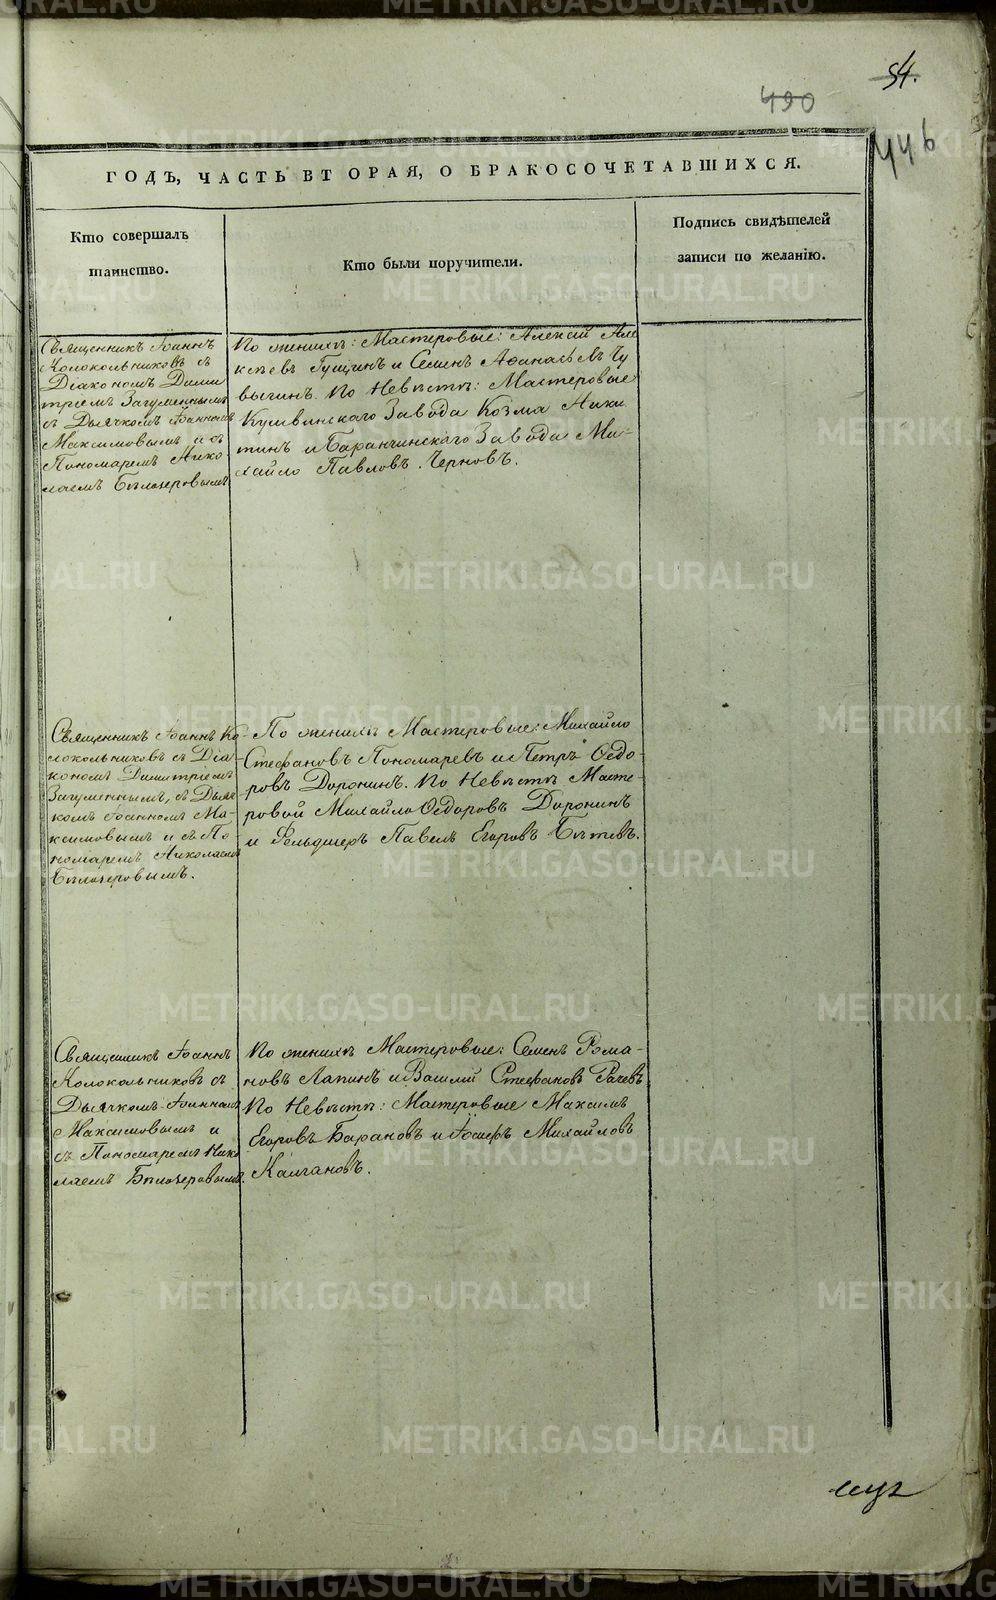 54.
490
446
ГОДЪ, ЧАСТЬ ВТОРАЯ, О БРАКОСОЧЕТАВШИХСЯ.
Кто совершалъ
таинство.
Кто были поручители.
Подпись свидѣтелей
записи по желанію.
Священникъ Іоаннъ
Колокольниковъ съ
Діакономъ Дими
тріемъ Загуменнымъ
съ Дьячкомъ Іоанномъ
Максимовымъ и съ
Пономаремъ Нико
лаемъ Бѣлозеровымъ
По женихѣ: Мастеровые: Алексѣй Але
ксѣевъ Гущинъ и Семенъ Аѳанасьевъ
По Невѣстѣ: Мастеровые
Кушвинскаго Завода Козма Ники
тинъ и Баранчинскаго Завода Ми
хайло Павловъ Черновъ.
Священникъ Іоаннъ Ко
локольниковъ съ Діа
кономъ Димитріемъ
Загуменнымъ, съ Дьяч
комъ Іоанномъ Ма-
ксимовымъ и съ По
номаремъ Николаемъ
Бѣлозеровымъ.
По женихѣ Мастеровые: Михайло
Стефановъ Пономаревъ и Петръ Ѳедо-
ровъ Доронинъ. По Невѣстѣ Масте-
ровой Михайло Ѳедоровъ Доронинъ
и Фельдшеръ Павелъ Егоровъ
Священникъ Іоаннъ
Колокольниковъ съ
Дьячкомъ Іоанномъ
Максимовымъ и
съ Пономаремъ Нико
лаемъ Бѣлозеровымъ.
По женихѣ Мастеровые: Семенъ Рома-
новъ Лапинъ и Василій Стефановъ Рачевъ
По Невѣстѣ: Мастеровые Максимъ
Егоровъ Барановъ и Іосифъ Михайловъ
Калгановъ.
METRIKI.GASO-URAL.RU